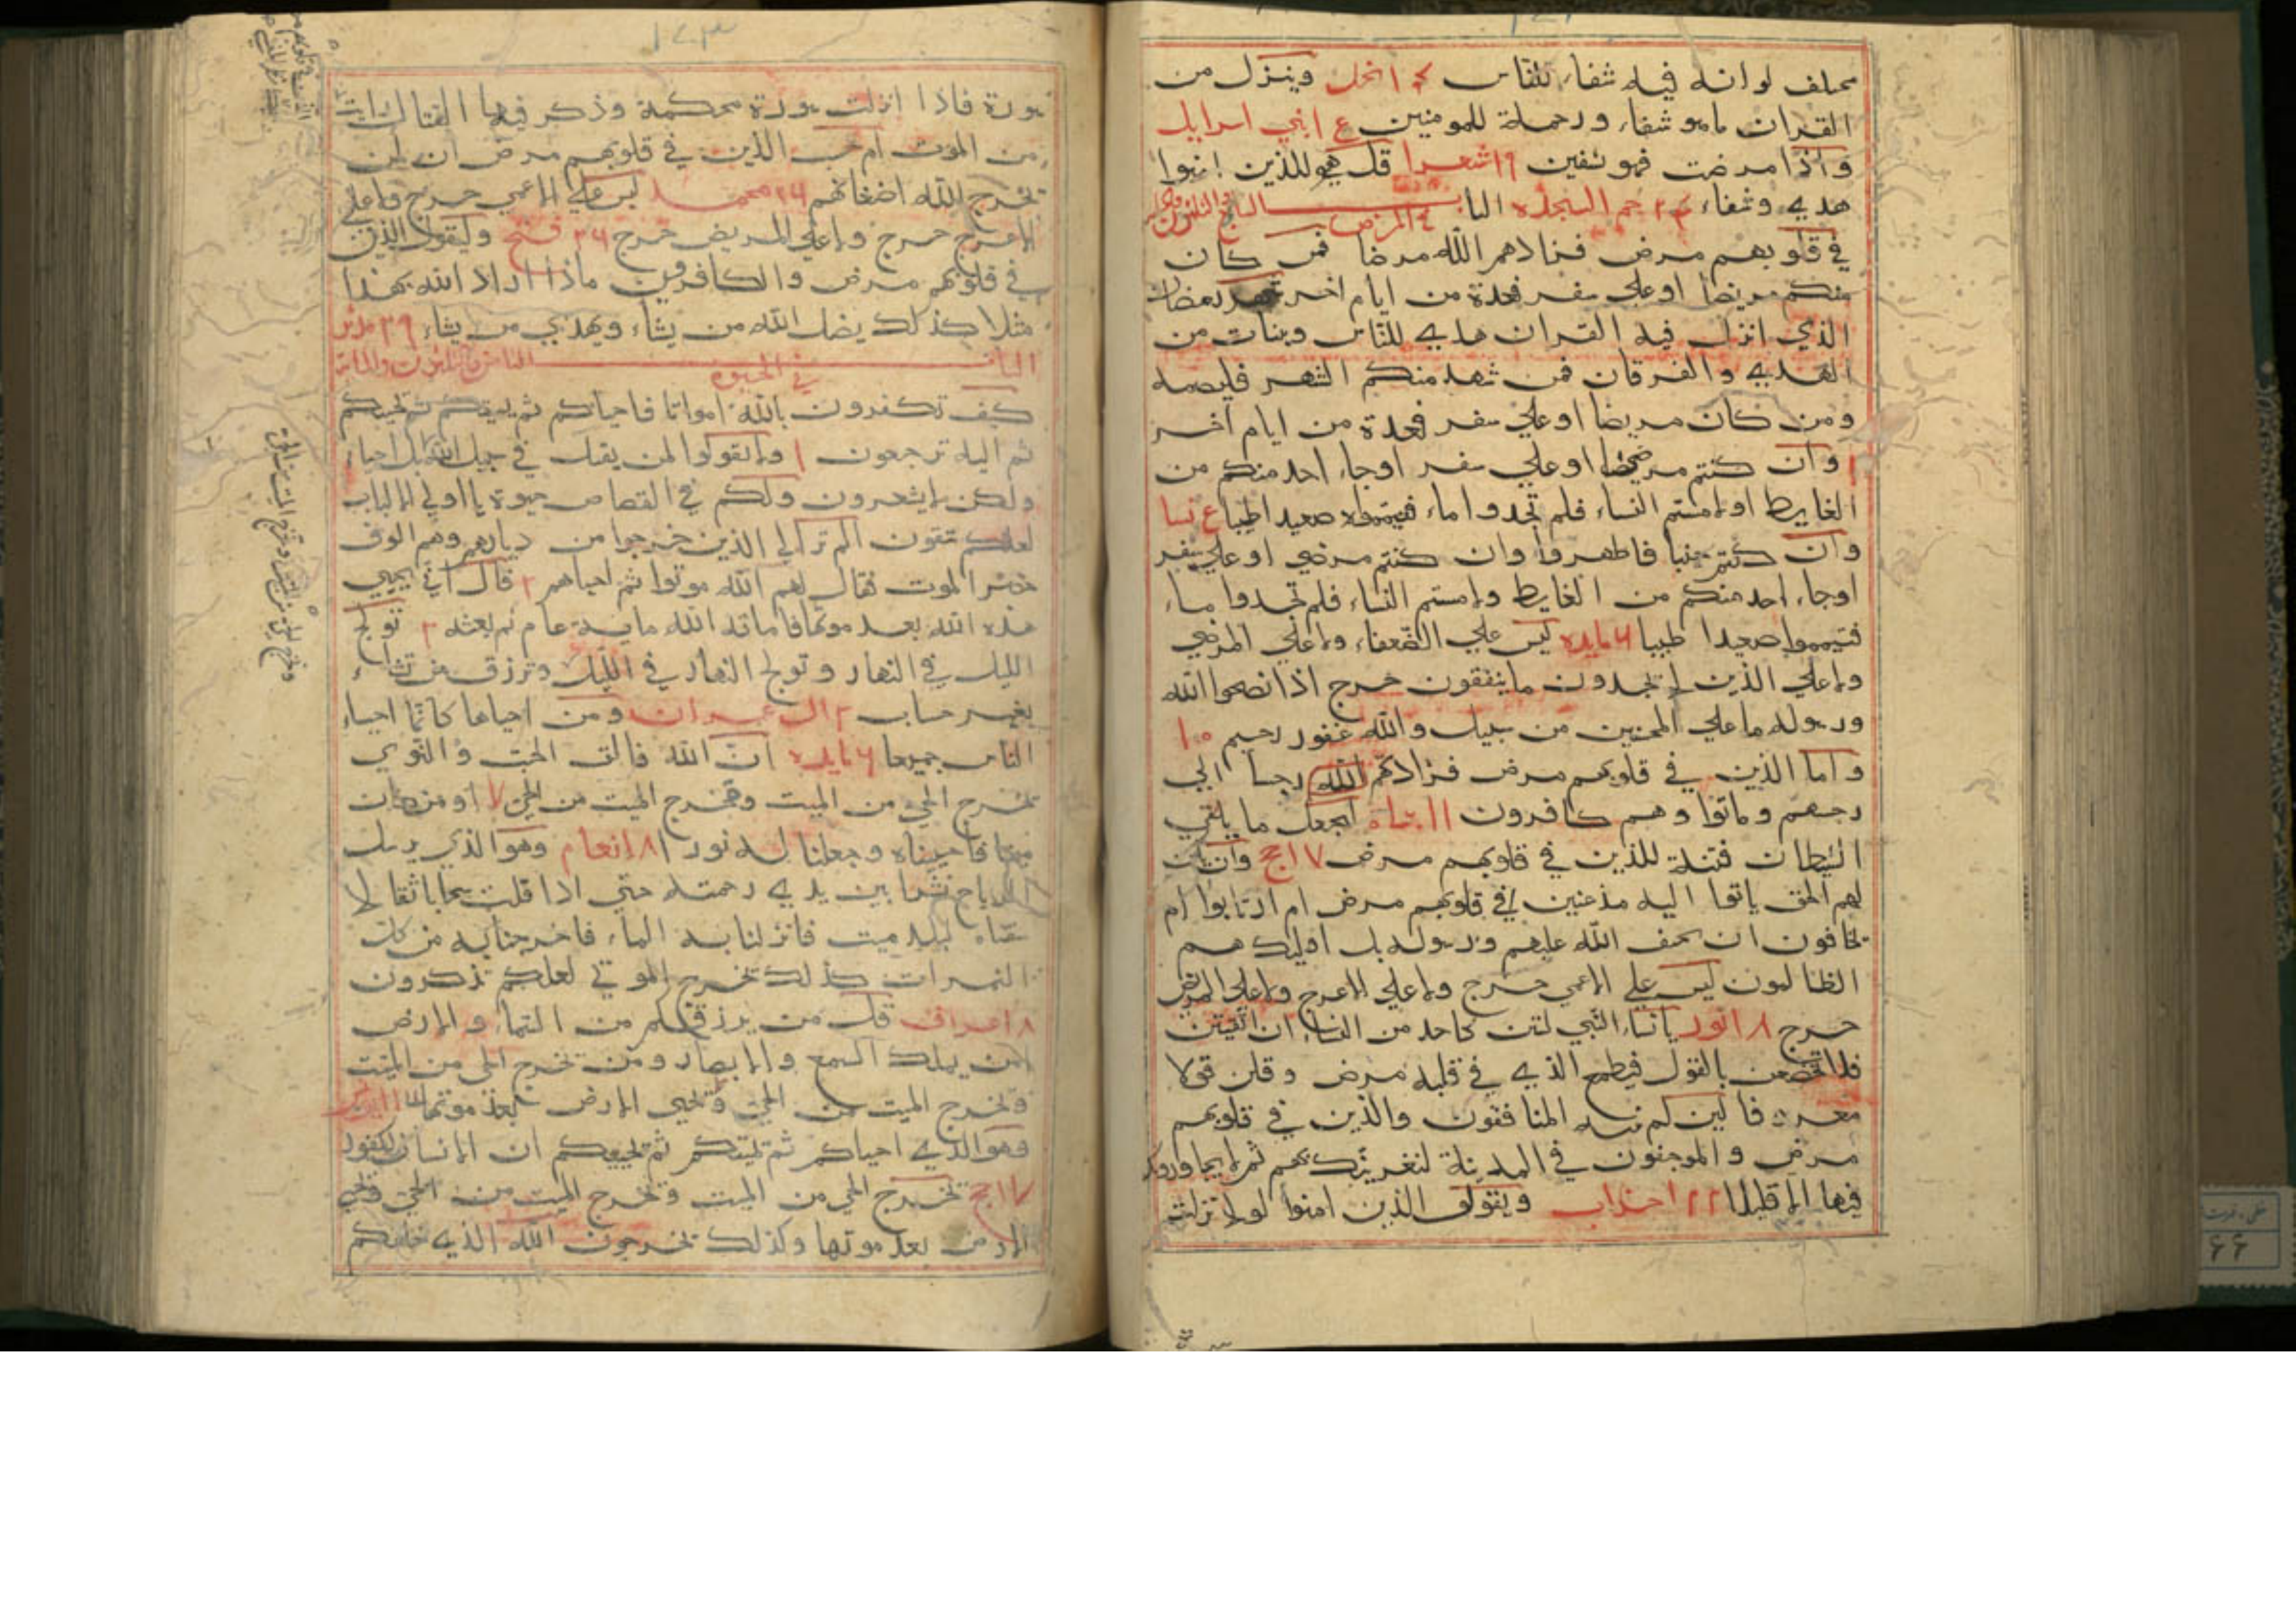 مختلف لوانه فيه شفاء للناس ١٤ نحل وينزل من
القران ماهو شفاء ورحمة للمومنين ١٥ بني اسرايل
واذا مرضت فهو يشفين ١٩ شعرا قل هو للذين امنوا
هدي وشفاء ٢٤ حم السجده الباب السابع والثلثون والمايه
في المرض
في قلوبهم مرض فزادهم الله مرضا فمن كان
منكم مريضا او علي سفر فعدة من ايام اخر شهر رمضان
الذي انزل فيه القران هدي للناس وبينات من
الهدي والفرقان فمن شهد منكم الشهر فليصمه
ومن كان مريضا او علي سفر فعدة من ايام اخر
٢ وان كنتم مرضي او علي سفر اوجاء احد منكم من
الغايط اولامستم النساء فلم تجدوا ماء فتيمموا صعيدا طيبا ٥ نسا
وان كنتم جنبا فاطهروا وان كنتم مرضي او علي سفر
اوجاء احد منكم من الغايط ولامستم النساء فلم تجدوا ماء
فتيمموا صعيدا طيبا ٦ مايده ليس علي الضعفاء ولا علي المرضي
ولا علي الذين لا يجدون ماينفقون حرج اذا نصحوا الله
ورسوله ما علي المحسنين من سبيل والله غفور رحيم ١٠
واما الذين في قلوبهم مرض فزادتهم الله رجسا الي
رجسهم وماتوا وهم كافرون ١١ ليجعل ما يلقي
الشيطان فتنة للذين في قلوبهم مرض ١٧ حج وان يكن
لهم الحق ياتوا اليه مذعنين افي قلوبهم مرض ام ارتابوا ام
يخافون ان يحيف الله عليهم ورسوله بل اوليك هم
الظالمون ليس علي الاعمي حرج ولا علي الاعرج ولا علي المريض
حرج ١٨ النور يانساء النبي لستن كاحد من النساء ان اتقيتن
فلا تخضعن بالقول فيطمع الذي في قلبه مرض وقلن قولا
معروفا لين لم ينته المنافقون والذين في قلوبهم
مرض والمرجفون في المدينة لنغرينك بهم ثم لا يجاورونك
فيها الا قليلا ٢٢ احزاب ويقول الذين امنوا لولا نزلت
١٢٣
سورة فاذا انزلت سورة محكمة وذكر فيها القتال رايت
من الموت ام حسب الذين في قلوبهم مرض ان لن
يخرج الله اضغانهم ٢٦ محمد ليس علي الاعمي حرج ولا علي
الاعرج حرج ولا علي المريض حرج ٢٦ فتح وليقول الذين
في قلوبهم مرض والكافرون ماذا اراد الله بهذا
مثلا كذلك يضل الله من يشاء ويهدي من يشاء ٢٩ مدثر
الباب الثامن والثلثون والماية
في الحيوه
كيف تكفرون بالله امواتا فاحياكم ثم يميتكم ثم يحييكم
ثم اليه ترجعون ١ ولا تقولوا لمن يقتل في سبيل الله بل احياء
ولكن لا يشعرون ولكم في القصاص حيوة يااولي الالباب
لعلكم تتقون الم تر الي الذين خرجوا من ديارهم وهم الوف
حذر الموت فقال لهم الله موتوا ثم احياهم ٢ قال اني يحيي
هذه الله بعد موتها فاماته الله ماية عام ثم بعثه ٣ تولج
الليل في النهار وتولج النهار في الليل وترزق من تشاء
بغير حساب ٣ ال عمران ومن احياها كانما احياء
الناس جميعا ٦ مايده ان الله فالق الحب والنوي
يخرج الحي من الميت ومخرج الميت من الحي ٧ اومن كان
ميتا فاحييناه وجعلنا له نورا ٨ انعام وهو الذي يرسل
الرياح نشرا بين يدي رحمته حتي اذا اقلت سحابا ثقالا
سقناه لبلد ميت فانزلنا به الماء فاخرجنا به من كل
الثمرات كذلك نخرج الموتي لعلكم تذكرون
٨ اعراف قل من يرزقكم من السماء والارض
امن يملك السمع والابصار ومن يخرج الحي من الميت
ويخرج الميت من الحي ويحيي الارض بعد موتها
وهو الذي احياكم ثم يميتكم ثم يحييكم ان الانسان لكفور
١٧ حج يخرج الحي من الميت ويخرج الميت من الحي ويحيي
الارض بعد موتها وكذلك تخرجون الله الذي خلقكم
٦٦